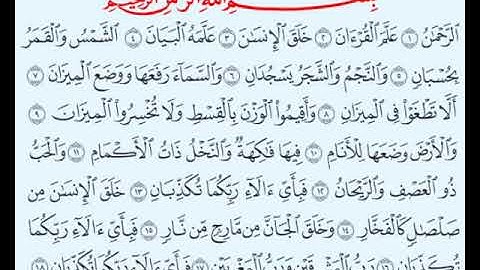 بِسْمِ ٱللَّهِ ٱلرَّحْمَٰنِ ٱلرَّحِيمِ
ٱلرَّحْمَٰنُ ١ عَلَّمَ ٱلْقُرْءَانَ ٢ خَلَقَ ٱلْإِنسَٰنَ ٣ عَلَّمَهُ ٱلْبَيَانَ ٤ ٱلشَّمْسُ وَٱلْقَمَرُ
بِحُسْبَانٍ ٥ وَٱلنَّجْمُ وَٱلشَّجَرُ يَسْجُدَانِ ٦ وَٱلسَّمَآءَ رَفَعَهَا وَوَضَعَ ٱلْمِيزَانَ ٧
أَلَّا تَطْغَوْا۟ فِى ٱلْمِيزَانِ ٨ وَأَقِيمُوا۟ ٱلْوَزْنَ بِٱلْقِسْطِ وَلَا تُخْسِرُوا۟ ٱلْمِيزَانَ ٩
وَٱلْأَرْضَ وَضَعَهَا لِلْأَنَامِ ١٠ فِيهَا فَٰكِهَةٌ وَٱلنَّخْلُ ذَاتُ ٱلْأَكْمَامِ ١١ وَٱلْحَبُّ
ذُو ٱلْعَصْفِ وَٱلرَّيْحَانُ ١٢ فَبِأَىِّ ءَالَآءِ رَبِّكُمَا تُكَذِّبَانِ ١٣ خَلَقَ ٱلْإِنسَٰنَ مِن
صَلْصَٰلٍ كَٱلْفَخَّارِ ١٤ وَخَلَقَ ٱلْجَآنَّ مِن مَّارِجٍ مِّن نَّارٍ ١٥ فَبِأَىِّ ءَالَآءِ رَبِّكُمَا
تُكَذِّبَانِ ١٦ رَبُّ ٱلْمَشْرِقَيْنِ وَرَبُّ ٱلْمَغْرِبَيْنِ ١٧ فَبِأَىِّ ءَالَآءِ رَبِّكُمَا تُكَذِّبَانِ ١٨